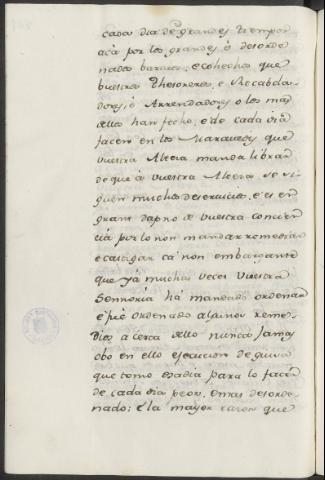 cada dia de grandes tiempos
acá por los grandes é desorde
nados baratos, e cohechos que
vuestros Thesoreros, e Recabda-
dores, é Arrendadores o los mas
dellos han fecho, e de cada dia
facen en los Maravedis que
vuestra Alteza manda librar
de que á vuestra Alteza se si-
guen muchos deservicios, e es en
grant dapno de vuestra concien
cia por lo non mandar remediar
e castigar ca non embargante
que yá muchas veces vuestra
Sennoria há mandado ordenar
é fué ordenado algunos reme-
dios acerca dello nunca jamas
obo en ello ejecucion de guisa
que tomo osadia para lo facer
de cada dia peor, e mas desorde-
nado; é la mayor razon que